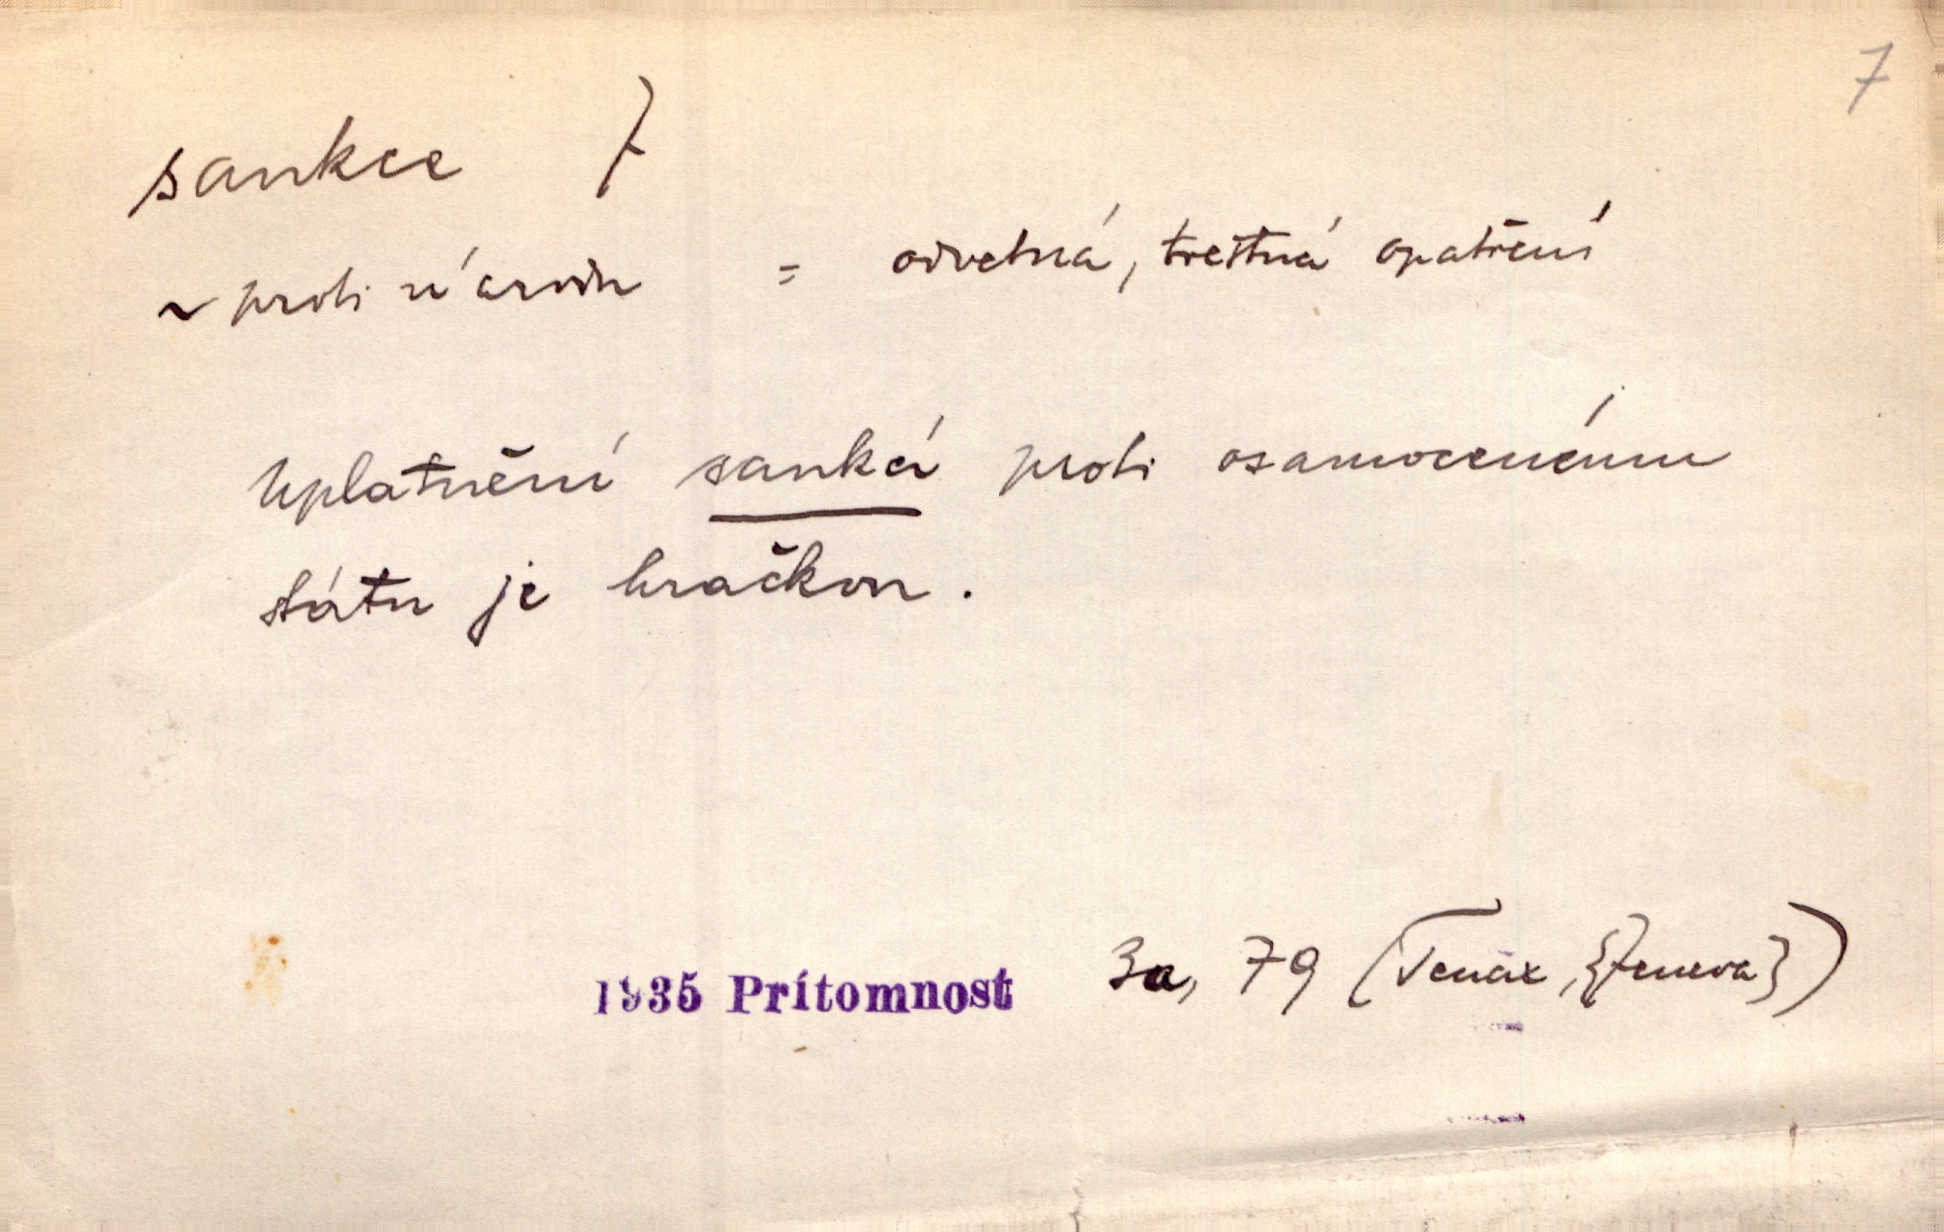 7
sankce f
~ proti národu = odvetná, trestná opatření
Uplatnění sankcí proti osamocenému
státu je hračkou.
1935 Prítomnost 3a, 79 (Tenax, {Ženeva})